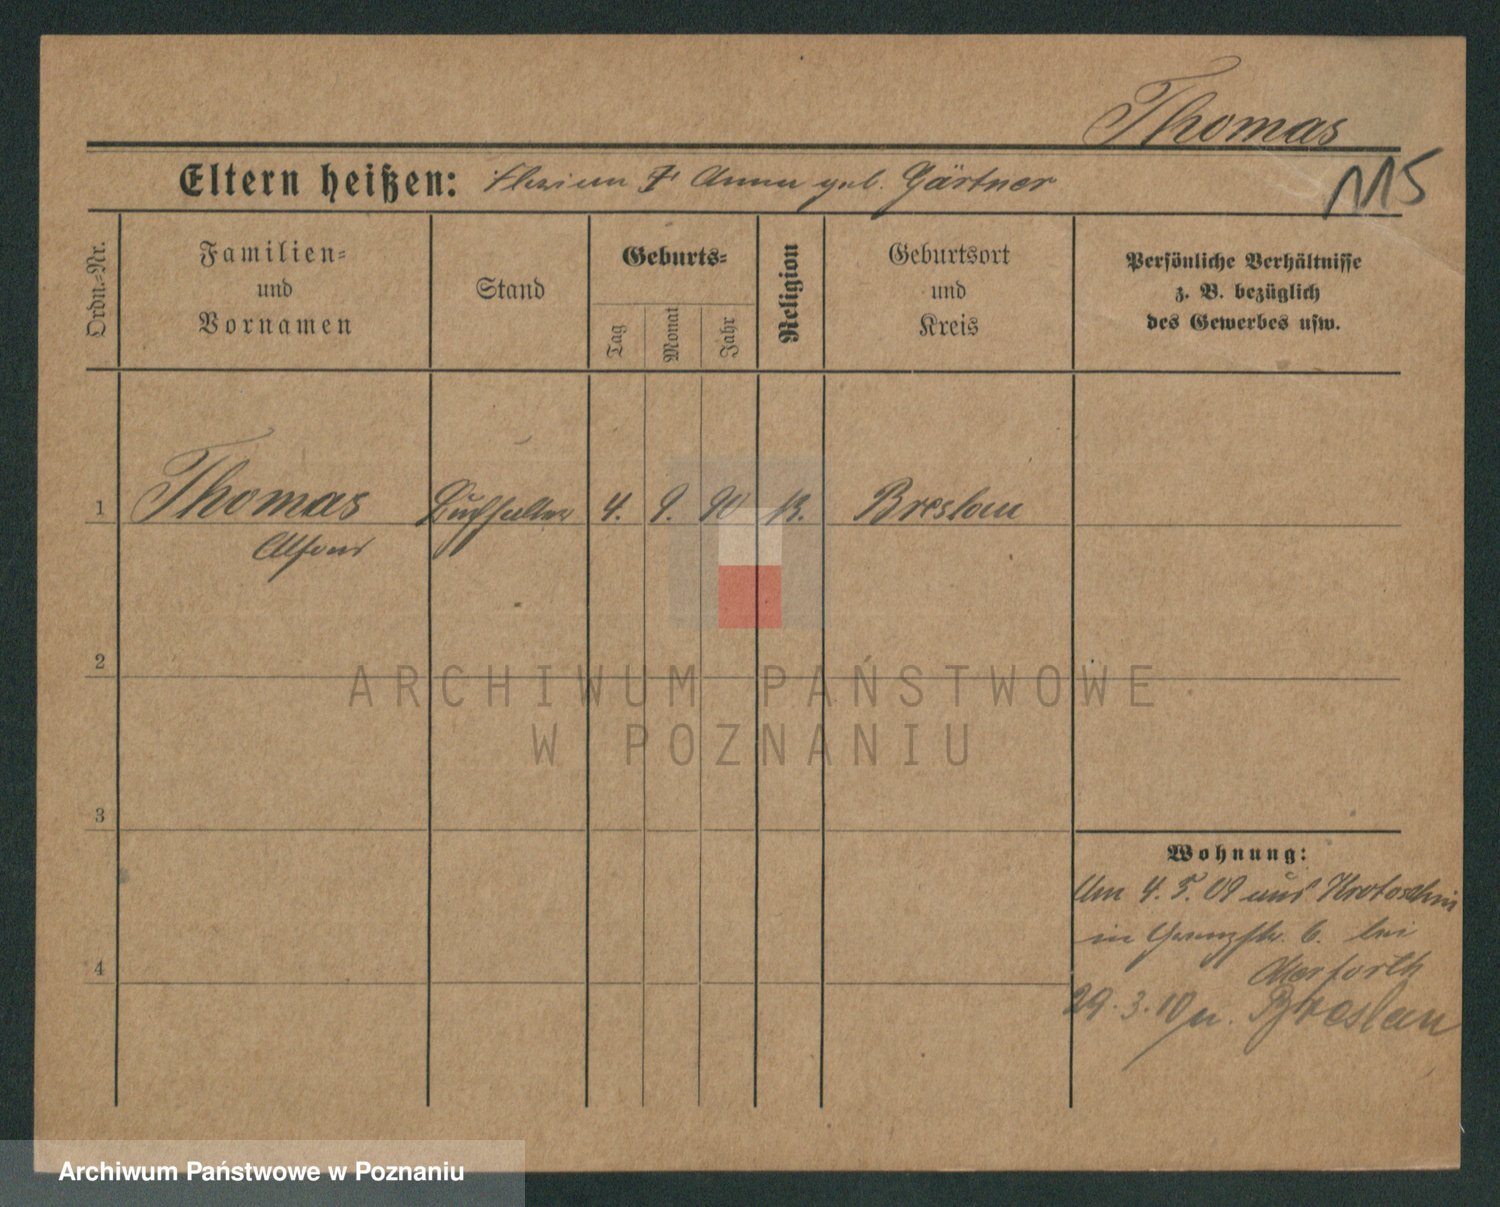 Thomas
115
Eltern heißen: Florian u. Anna geb. Gärtner
Ordn.-Nr.
Familien-
und
Vornamen
Stand
Geburts-
Tag
Monat
Jahr
Religion
Geburtsort
und
Kreis
Persönliche Verhältnisse
z. B. bezüglich
des Gewerbes usw.
1 Thomas Buchhalter 4. 9. 90 k. Breslau
Alfons
2
3
4
Wohnung:
Am 4. 5. 09 aus Krotoschin
in 6. bei
29. 3. 10 n. Breslau
ARCHIWUM PAŃSTWOWE
W POZNANIU
Archiwum Państwowe w Poznaniu